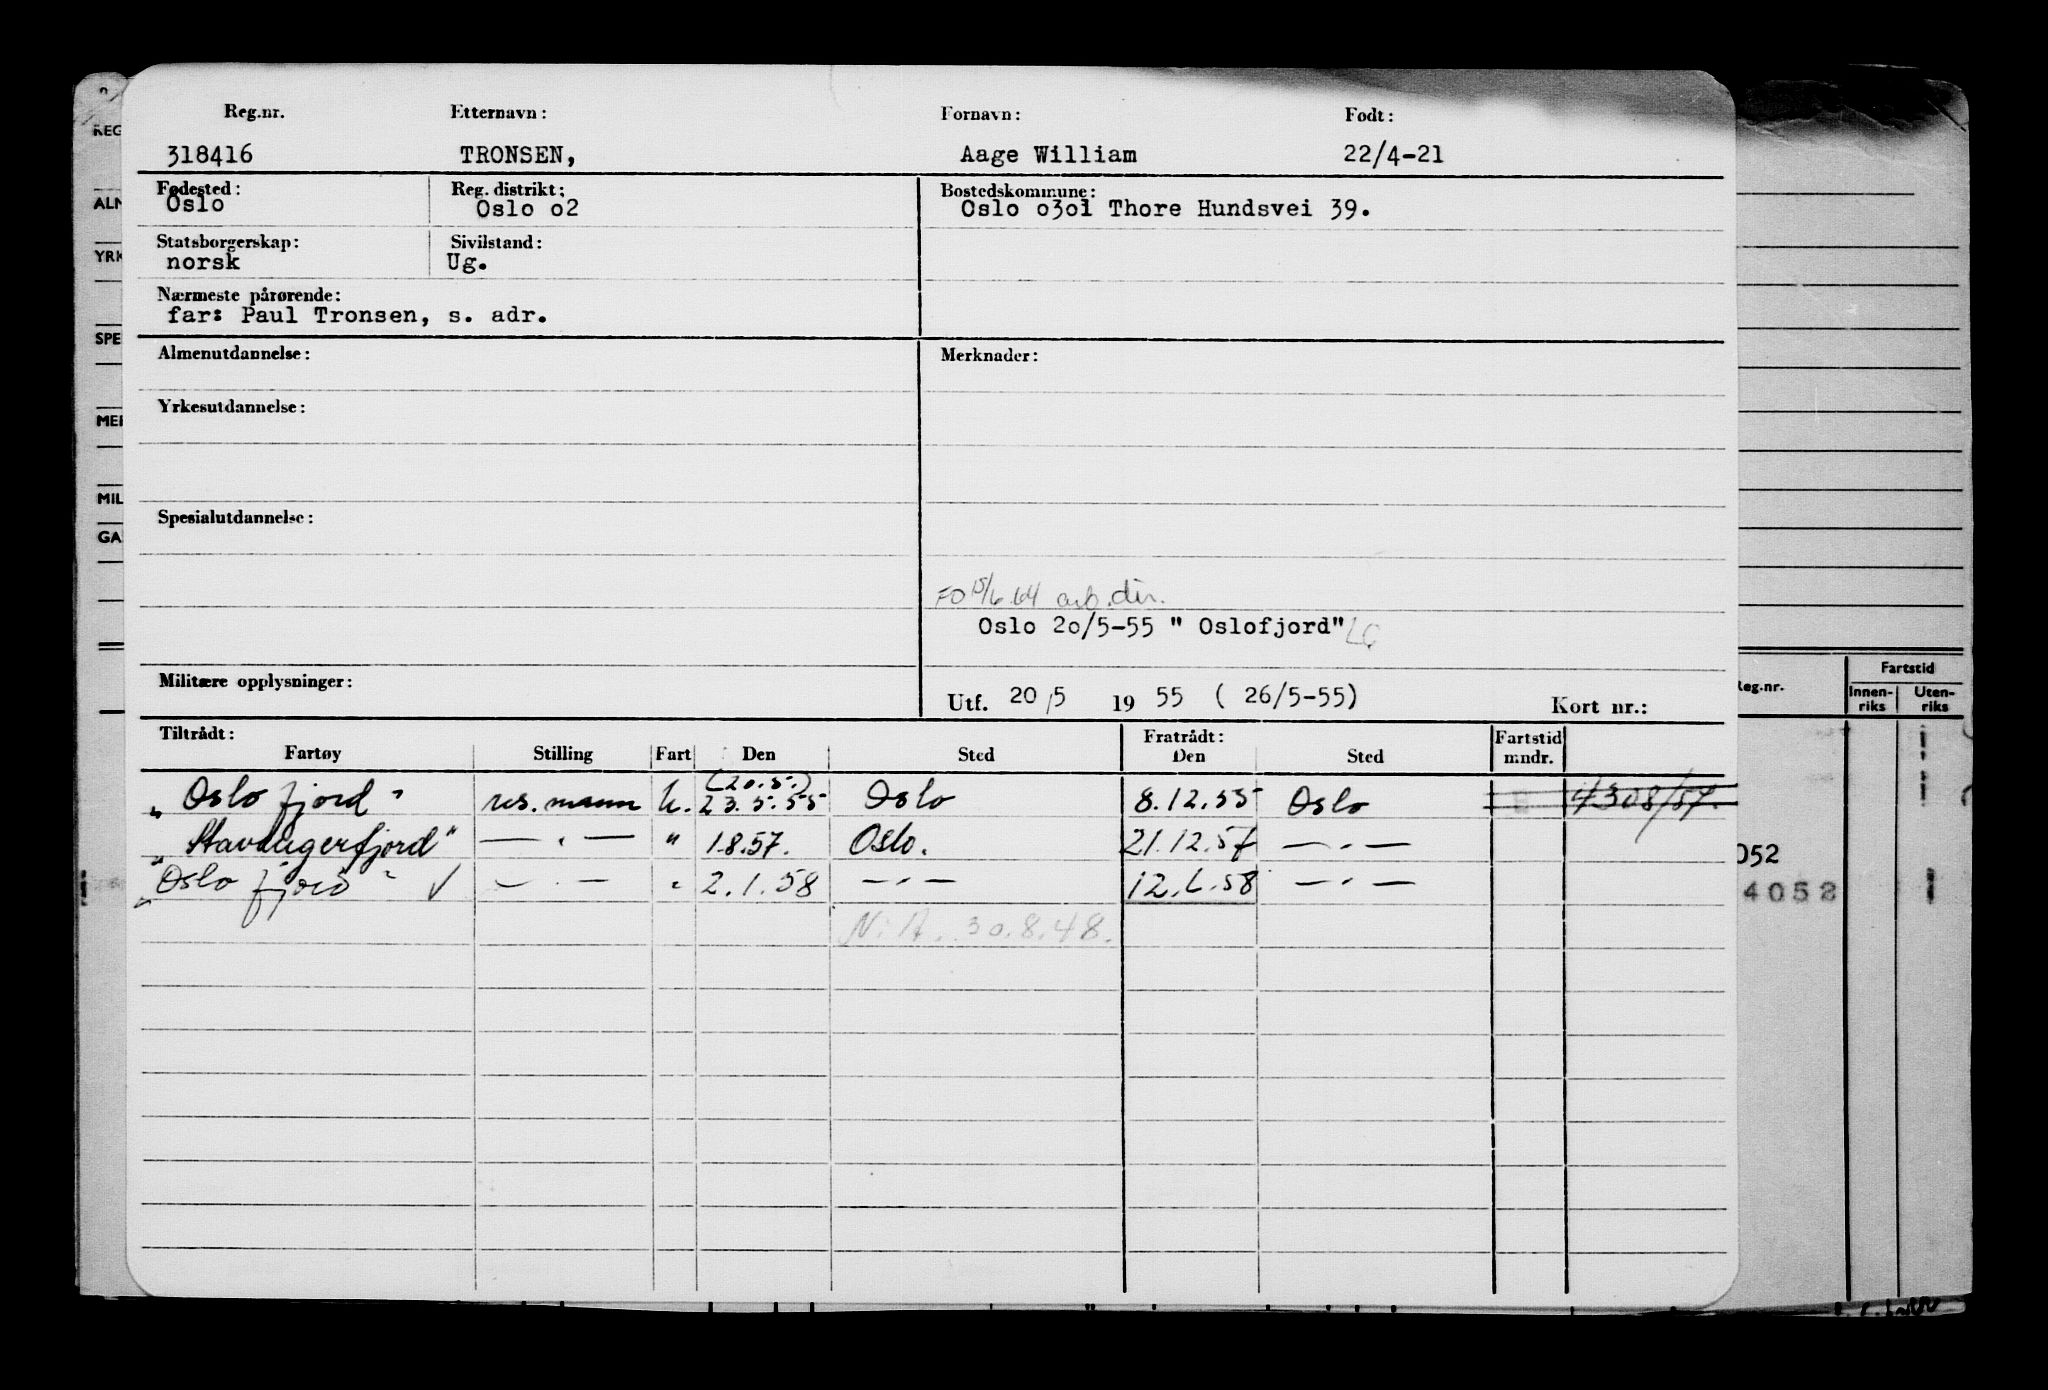 Reg.nr. Etternavn: Fornavn: Født:
318416 TRONSEN, Aage William 22/4-21
Fødested: Reg. distrikt: Bostedskommune:
Oslo Oslo o2 Oslo o3o1 Thore Hundsvei 39.
Statsborgerskap: Sivilstand:
norsk Ug.
Nærmeste pårørende:
far: Paul Tronsen, s. adr.
Almenutdannelse: Merknader:
Yrkesutdannelse:
Spesialutdannelse:
FO 15/6.64 arb.dir.
Oslo 20/5-55 " Oslofjord"
Militære opplysninger:
Utf. 20/5 1955 ( 26/5-55) Kort nr.:
Tiltrådt: Fratrådt: Fartstid
Fartøy Stilling Fart Den Sted Den Sted mndr.
(20.5.)
"Oslofjord" res. mann U. 23.5.55 Oslo 8.12.55 Oslo 4308/57.
"Stavangerfjord" — " — " 1.8.57. Oslo. 21.12.57 — " —
"Oslofjord" ✓ — " — " 2.1.58 — " — 12.6.58 — " —
N.A. 30.8.48.
REG
ALM
YRK
SPE
MER
MIL
GA
Reg.nr. Fartstid
Innen-
riks Uten-
riks
052
4052